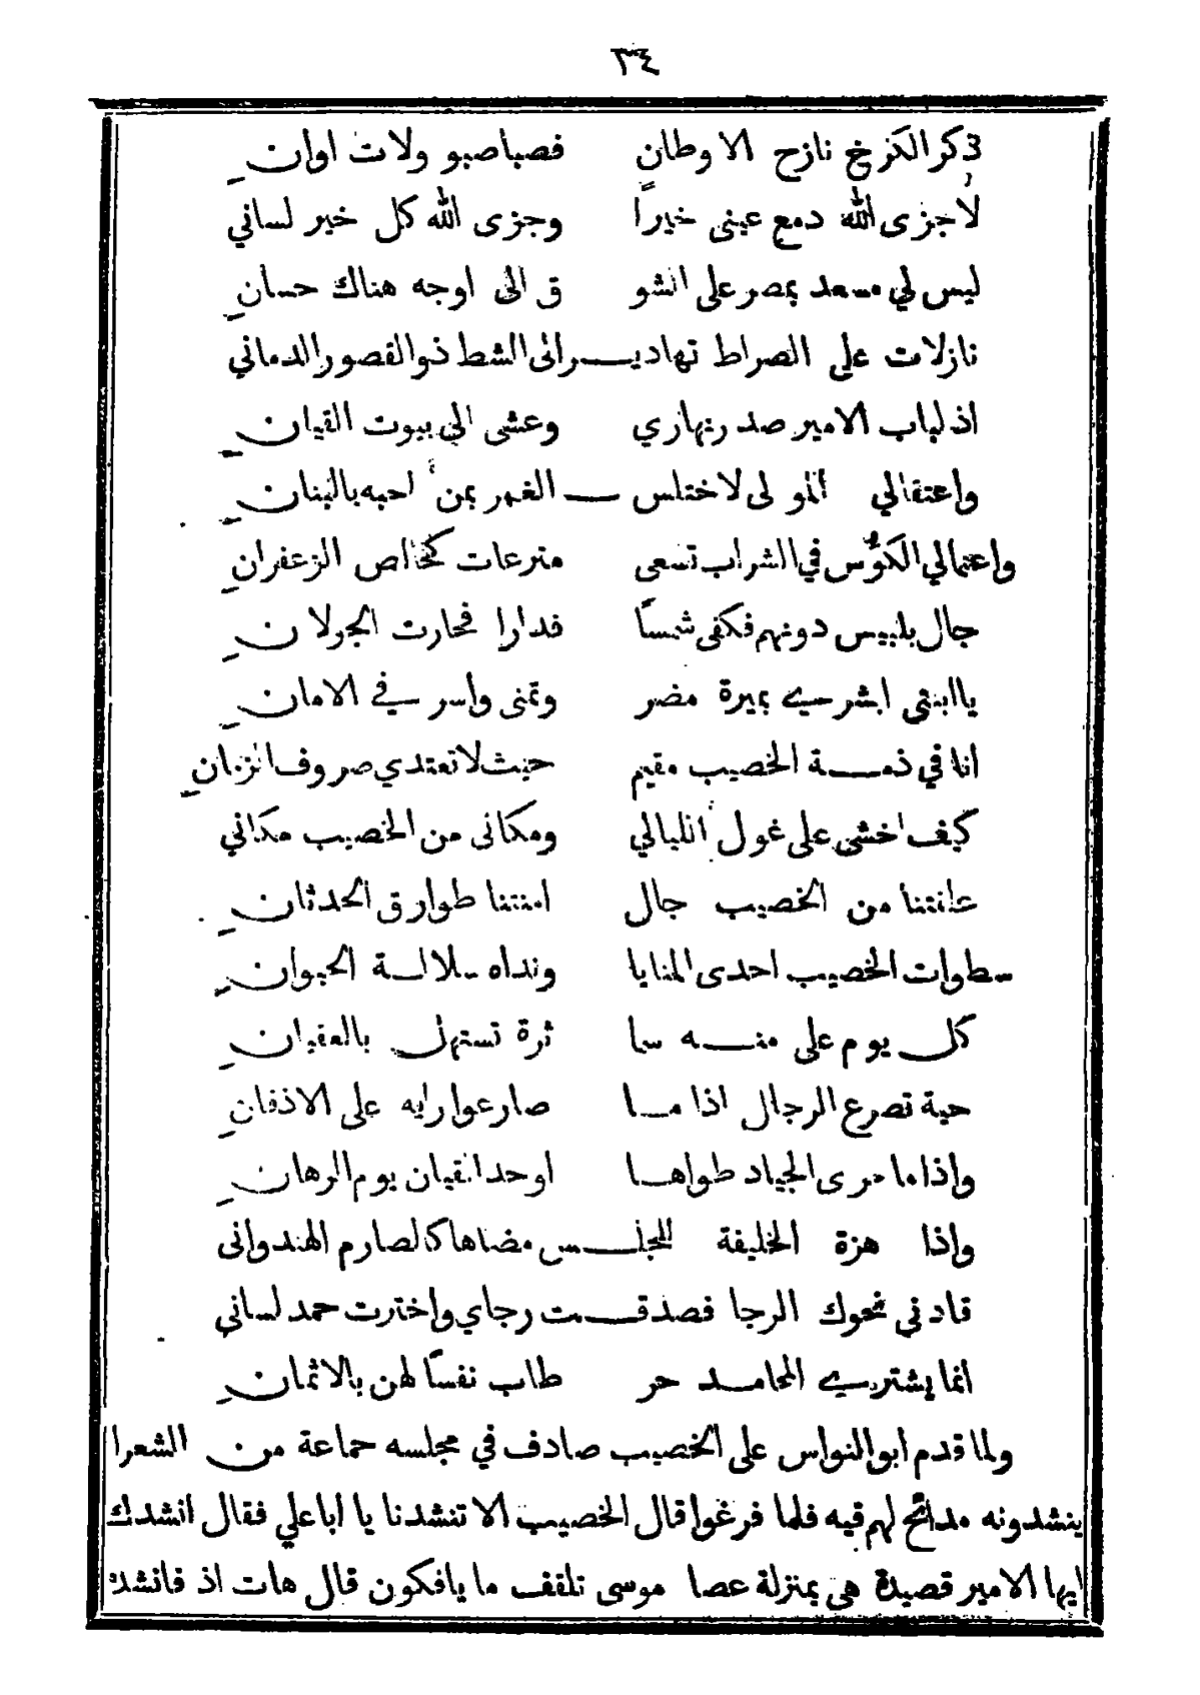 ٣٤
ذكر الكرخ نازح الاوطان فصباصبو ولات اوانِ
لاجزى الله دمع عينى خيراً وجزى الله كل خير لساني
ليس لي مسعد بمصر على الشو ق الى اوجه هناك حسانِ
نازلات على الصراط تهاديـــر الى الشط ذوالقصور الدماني
اذ لباب الامير صدر نهاري وعشى الى بيوت القيانِ
واعتقالي المولى لاختلس ـــ الغمر بمن احبه بالبنانِ
واعتمالي الكؤس في الشراب تسعى مترعات كخالص الزعفرانِ
جال بلبيس دونهم فكفى شمساً فدارا فحارت الجولانِ
يا ابنتى ابشرـي بميرة مضر وتمنى واسر في الامانِ
انا في ذمـــة الخصيب مقيم حيث لا تعتدي صروف الزمانِ
كيف اخشى على غول الليالي ومكانى من الخصيب مكاني
علقتنا من الخصيب جال امنتنا طوارق الحدثانِ
سطوات الخصيب احدى المنايا ونداه سلالـة الحيوانِ
كل يوم على منـــه سما ثرة تستهل بالعقيانِ
حية تصرع الرجال اذا مـا صارعوا رايه على الاذقانِ
واذا ما جرى الجياد طواهـا اوحد القيان يوم الرهانِ
واذا هزة الخليفة للجلـــس مضاها كالصارم الهندوانى
قادني نحوك الرجا فصدقـــت رجاي واخترت حمد لساني
انما يشترـي المحامـد حر طاب نفساً لهن بالاثمانِ
ولما قدم ابوالنواس على الخصيب صادف في مجلسه جماعة من الشعرا
ينشدونه مدائح لهم فيه فلما فرغوا قال الخصيب الا تنشدنا يا اباعلي فقال انشدك
ايها الامير قصيدة هي بمنزلة عصا موسى تلقف ما يافكون قال هات اذ فانشد: